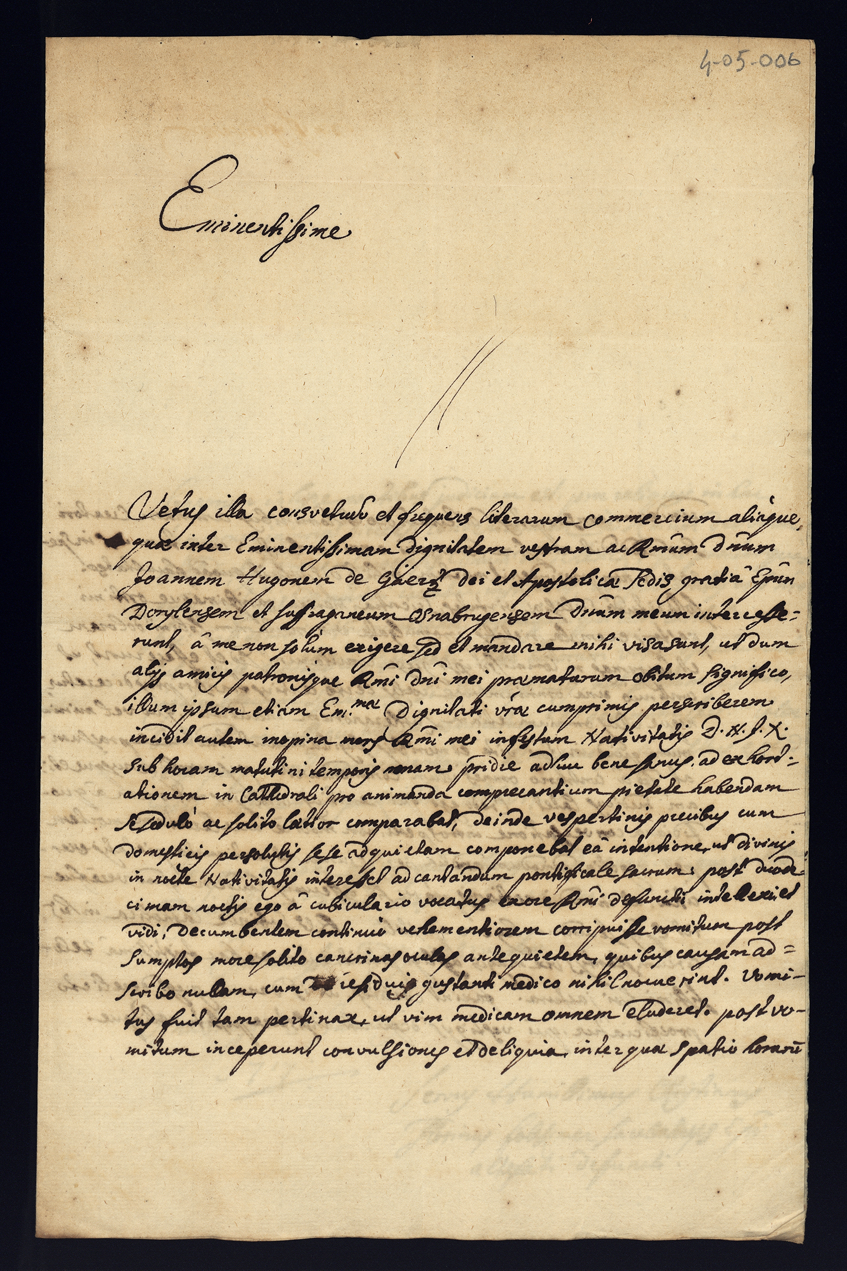 4-05-006
Eminentissime
Vetus illa consvetudo et frequens literarum commercium aliaque,
quae inter Eminentissimam dignitatem vestram ac Rmum Dnum
Joannem Hugonem de Gäertz dei et Apostolicae Sedis gratiâ Epũm
Dorylensem et suffraganeum Osnabrugensem Dnum meum intercesse=
runt, â me non solùm exigere sed et mandare mihi visa sunt, ut dum
alijs amicis patronisque Rmi Dni mei praematurum obitum significo,
illum ipsum etiam Em:mae Dignitati vrae cumprimis perscriberem
incidit autem inopina mors Rmi mei in festum Nativitatis D. N. J. X.
sub horam matutini temporis nonam: pridie adhuc bene sanus, ad exhort=
ationem in Cathedrali pro animanda comprecantium pietate habendam
se sedulò ac solito laetior comparabat; deinde vespertinis precibus cum
domesticis persolutis sese ad quietam componebat eâ intentione, ut divinis
in nocte Nativitatis interesset ad cantandum pontificale sacrum: post duode
cimam noctis ego â cubiculario vocatus ex ore Rmi defuncti intellexi et
vidi, decumbentem continuò vehementiorem corripuisse vomitum post
sumptos more solito cancrinos oculos ante quietem, quibus causam ad=
scribo nullam, cum residuis gustanti medico nihil nocuerint. Vomi-
tus fuit tam pertinax, ut vim medicam omnem eluderet. post vo-
mitum inceperunt convulsiones et deliquia, inter quae spatio horarũ